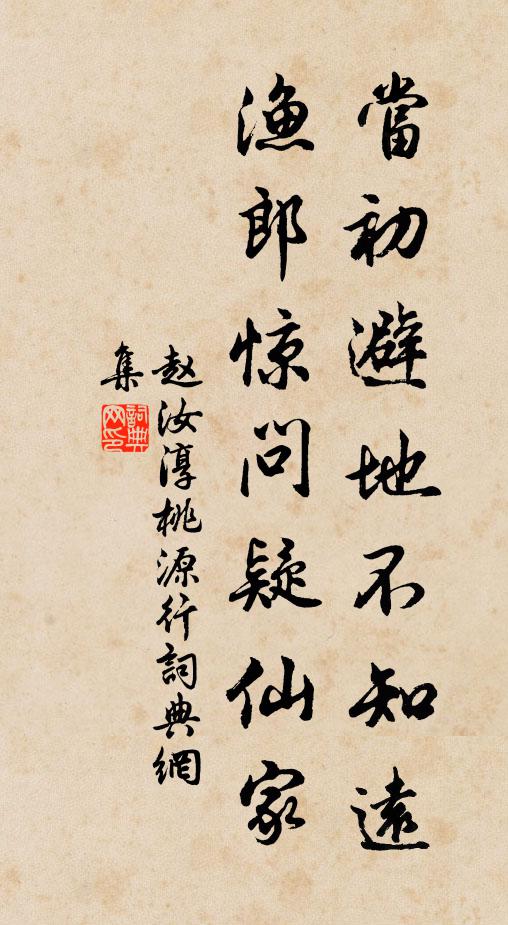 當初避地不知遠
漁郎惊問疑仙家
赵汝淳桃源行詞典網
集
詞典
网印